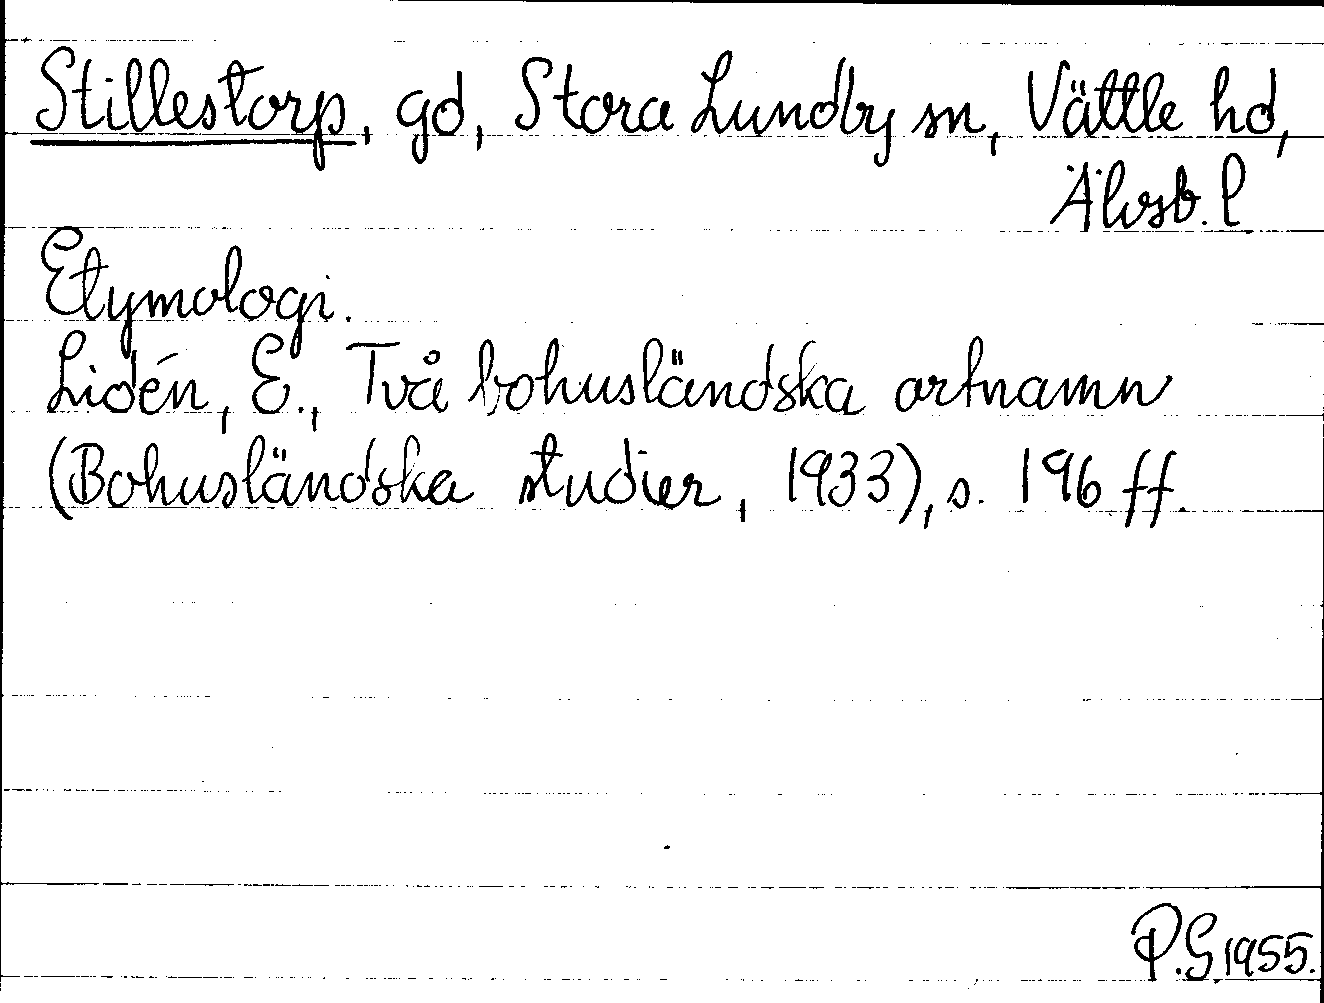 Stillestorp, gd, Stora Lundby sn, Vättle hd,
Älvsb. l
Etymologi.
Lidén, E., Två bohusländska ortnamn
(Bohusländska studier, 1933), s. 196 ff.
P.G 1955.